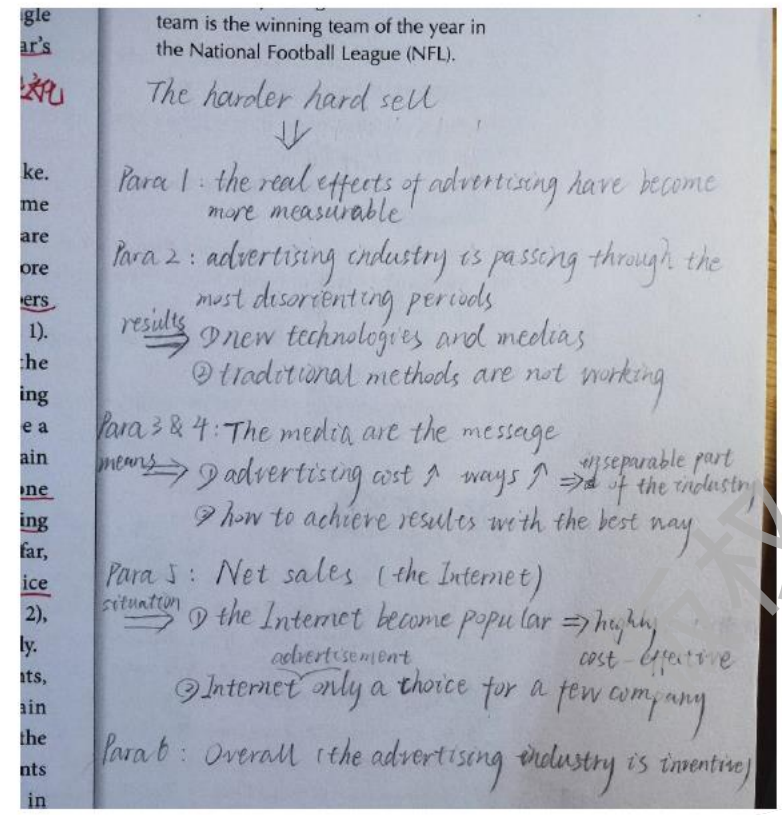 gle
ar's
ke.
me
are
ore
ers
1).
the
ing
e a
ain
one
ing
far,
ice
2),
ly.
nts,
ain
the
nts
in
team is the winning team of the year in
the National Football League (NFL).
The harder hard sell
⇓
Para 1: the real effects of advertising have become
more measurable
Para 2: advertising industry is passing through the
most disorienting periods
results
⇒ ① new technologies and medias
② traditional methods are not working
Para 3 & 4: The media are the message
means ⇒ ① advertising cost ↑ ways ↑ ⇒ inseparable part
of the industry
② how to achieve results with the best way
Para 5: Net sales (the Internet)
situation
⇒ ① the Internet become popular ⇒ highly
cost-effective
advertisement
② Internet only a choice for a few company
Para 6: Overall (the advertising industry is inventive)